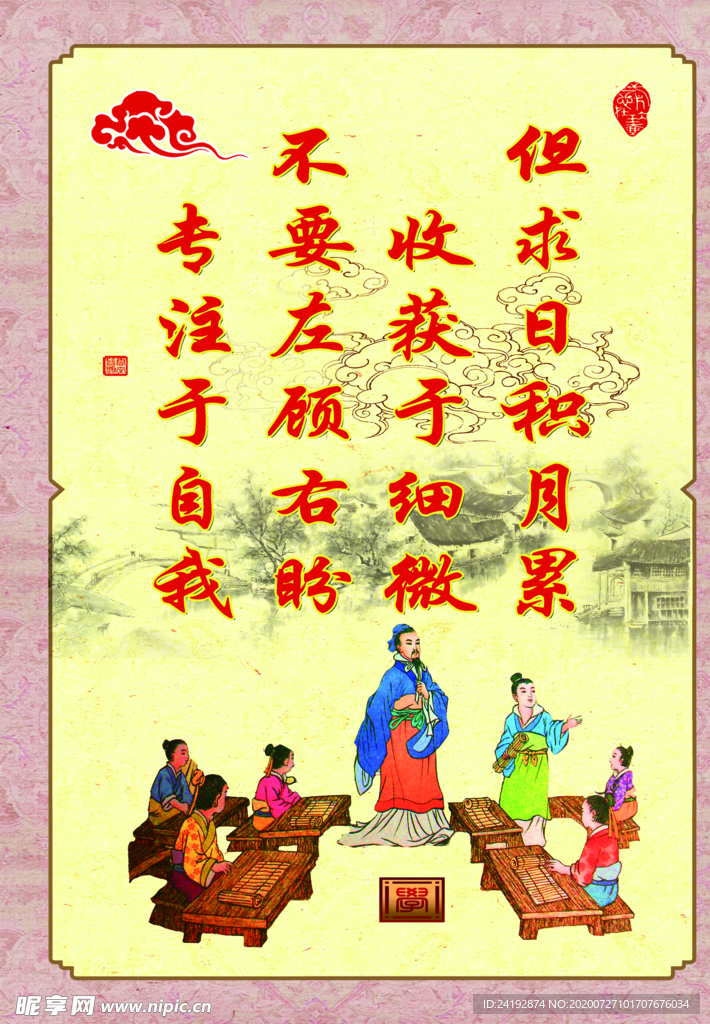 但求日积月累
收获于细微
不要左顾右盼
专注于自我
學
昵享网 www.nipic.cn
ID:24192874 NO:20200727101707676034